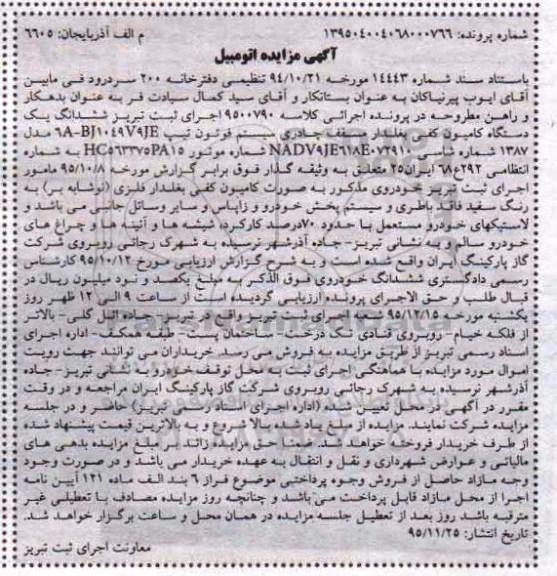 شماره پرونده: ۱۳۹۵۰۴۰۰۴۰۶۸۰۰۰۷۶۶ م الف آذربایجان: ۶۶۰۵
آگهی مزایده اتومبیل
باستناد سند شماره ۱۴۴۴۳ مورخه ۹۴/۱۰/۲۱ تنظیمی دفترخانه ۲۰۰ سردرود فی مابین
آقای ایوب پیرنیاکان به عنوان بستانکار و آقای سید کمال سیادت فر به عنوان بدهکار
و راهن مطروحه در پرونده اجرائی کلاسه ۹۵۰۰۷۹۰ اجرای ثبت تبریز ششدانگ یک
دستگاه کامیون کفی بغلدار مسقف چادری سیستم فوتون تیپ ۶۸-BJ۱۰۴۹V۹JE مدل
۱۳۸۷ شماره شاسی NADV۹JE۶۱۸E۰۷۲۹۱۰ شماره موتور HC۵۶۳۳۷۵PA۱۵ به شماره
انتظامی ۲۹۲ع۶۸ ایران۲۵ متعلق به وثیقه گذار فوق برابر گزارش مورخه ۹۵/۱۰/۸ مامور
اجرای ثبت تبریز خودروی مذکور به صورت کامیون کفی بغلدار فلزی (نوشابه بر) به
رنگ سفید فاقد باطری و سیستم پخش خودرو و زاپاس و سایر وسائل جانبی می باشد و
لاستیکهای خودرو مستعمل با حدود ۷۰درصد کارکرد، شیشه ها و آئینه ها و چراغ های
خودرو سالم و به نشانی تبریز- جاده آذرشهر نرسیده به شهرک رجائی روبروی شرکت
گاز پارکینگ ایران واقع شده است و به شرح گزارش ارزیابی مورخ ۹۵/۱۰/۱۲ کارشناس
رسمی دادگستری ششدانگ خودروی فوق الذکر به مبلغ یکصد و نود میلیون ریال در
قبال طلب و حق الاجرای پرونده ارزیابی گردیده است از ساعت ۹ الی ۱۲ ظهر روز
یکشنبه مورخه ۹۵/۱۲/۱۵ شعبه اجرای ثبت تبریز واقع در تبریز- جاده ائل گلی- بالاتر
از فلکه خیام- روبروی قنادی تک درخت- ساختمان پست- طبقه همکف- اداره اجرای
اسناد رسمی تبریز از طریق مزایده به فروش می رسد. خریداران می توانند جهت رویت
اموال مورد مزایده با هماهنگی اجرای ثبت به محل توقف خودرو به نشانی تبریز- جاده
آذرشهر نرسیده به شهرک رجائی روبروی شرکت گاز پارکینگ ایران مراجعه و در وقت
مقرر در آگهی در محل تعیین شده (اداره اجرای اسناد رسمی تبریز) حاضر و در جلسه
مزایده شرکت نمایند. مزایده از مبلغ یاد شده بالا شروع و به بالاترین قیمت پیشنهاد شده
از طرف خریدار فروخته خواهد شد. ضمنا حق مزایده زائد بر مبلغ مزایده بدهی های
مالیاتی و عوارض شهرداری و نقل و انتقال به عهده خریدار می باشد و در صورت وجود
وجه مازاد حاصل از فروش وجوه پرداختی موضوع فراز ۶ بند الف ماده ۱۲۱ آیین نامه
اجرا از محل مازاد قابل پرداخت می باشد و چنانچه روز مزایده مصادف با تعطیلی غیر
مترقبه باشد روز بعد از تعطیل جلسه مزایده در همان محل و ساعت برگزار خواهد شد.
تاریخ انتشار: ۹۵/۱۱/۲۵
معاونت اجرای ثبت تبریز